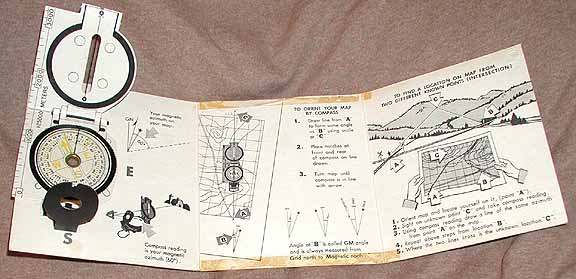 3000
2000
1000 METERS
GN
Your magnetic
azimuth on
E
S
Compass reading
is your magnetic
azimuth (60°).
TO ORIENT YOUR MAP
BY COMPASS
1. Draw line from "A"
to form same angle
as "B" using angle
at "C"
2. Place notches at
front and rear
of compass on line
drawn.
3. Turn map until
compass is in line
with arrow.
Angle at "B" is called GM angle
and is always measured from
Grid north to Magnetic north.
TO FIND A LOCATION ON MAP FROM
TWO DIFFERENT KNOWN POINTS (INTERSECTION)
"C"
B
"A"
C
A
B
1. Orient map and locate yourself on it, (point "A").
2. Sight on unknown point "C" and take compass reading.
3. Using compass reading draw a line of the same azimuth
from point "A" on the map.
4. Repeat above steps from location "B".
5. Where the two lines cross is the unknown location "C".